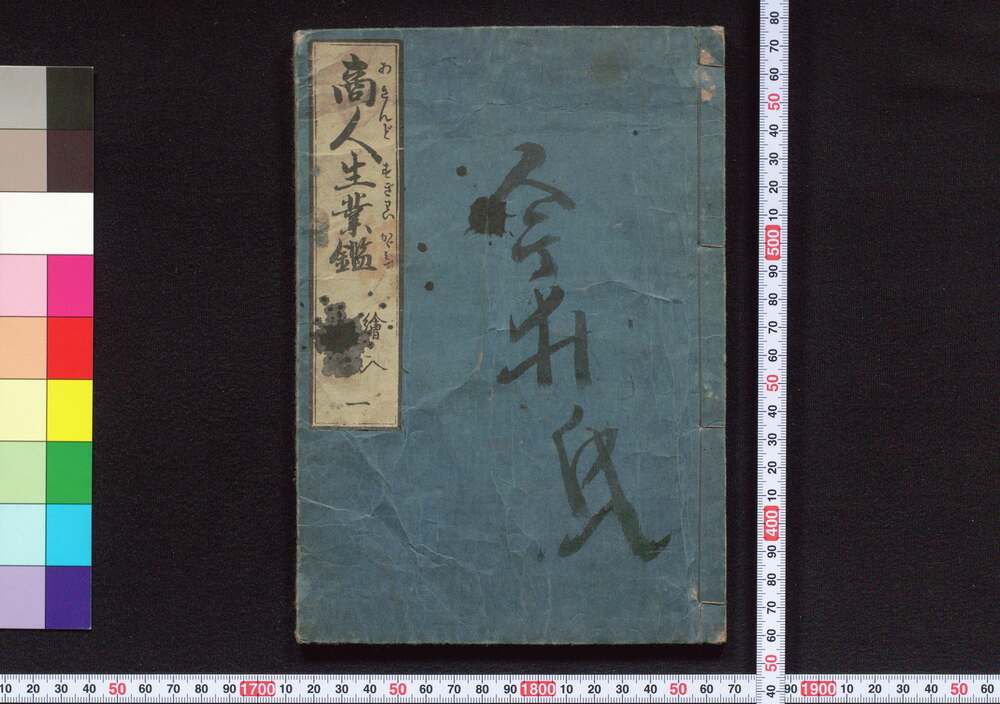 商人生業鑑
あきんど すぎわい かゞみ
繪入
一
今井氏
80
70
60
50
40
30
20
10
500
90
80
70
60
50
40
30
20
10
400
90
80
70
60
50
40
10 20 30 40 50 60 70 80 90 1700 10 20 30 40 50 60 70 80 90 1800 10 20 30 40 50 60 70 90 1900 10 20 30 40 50 60